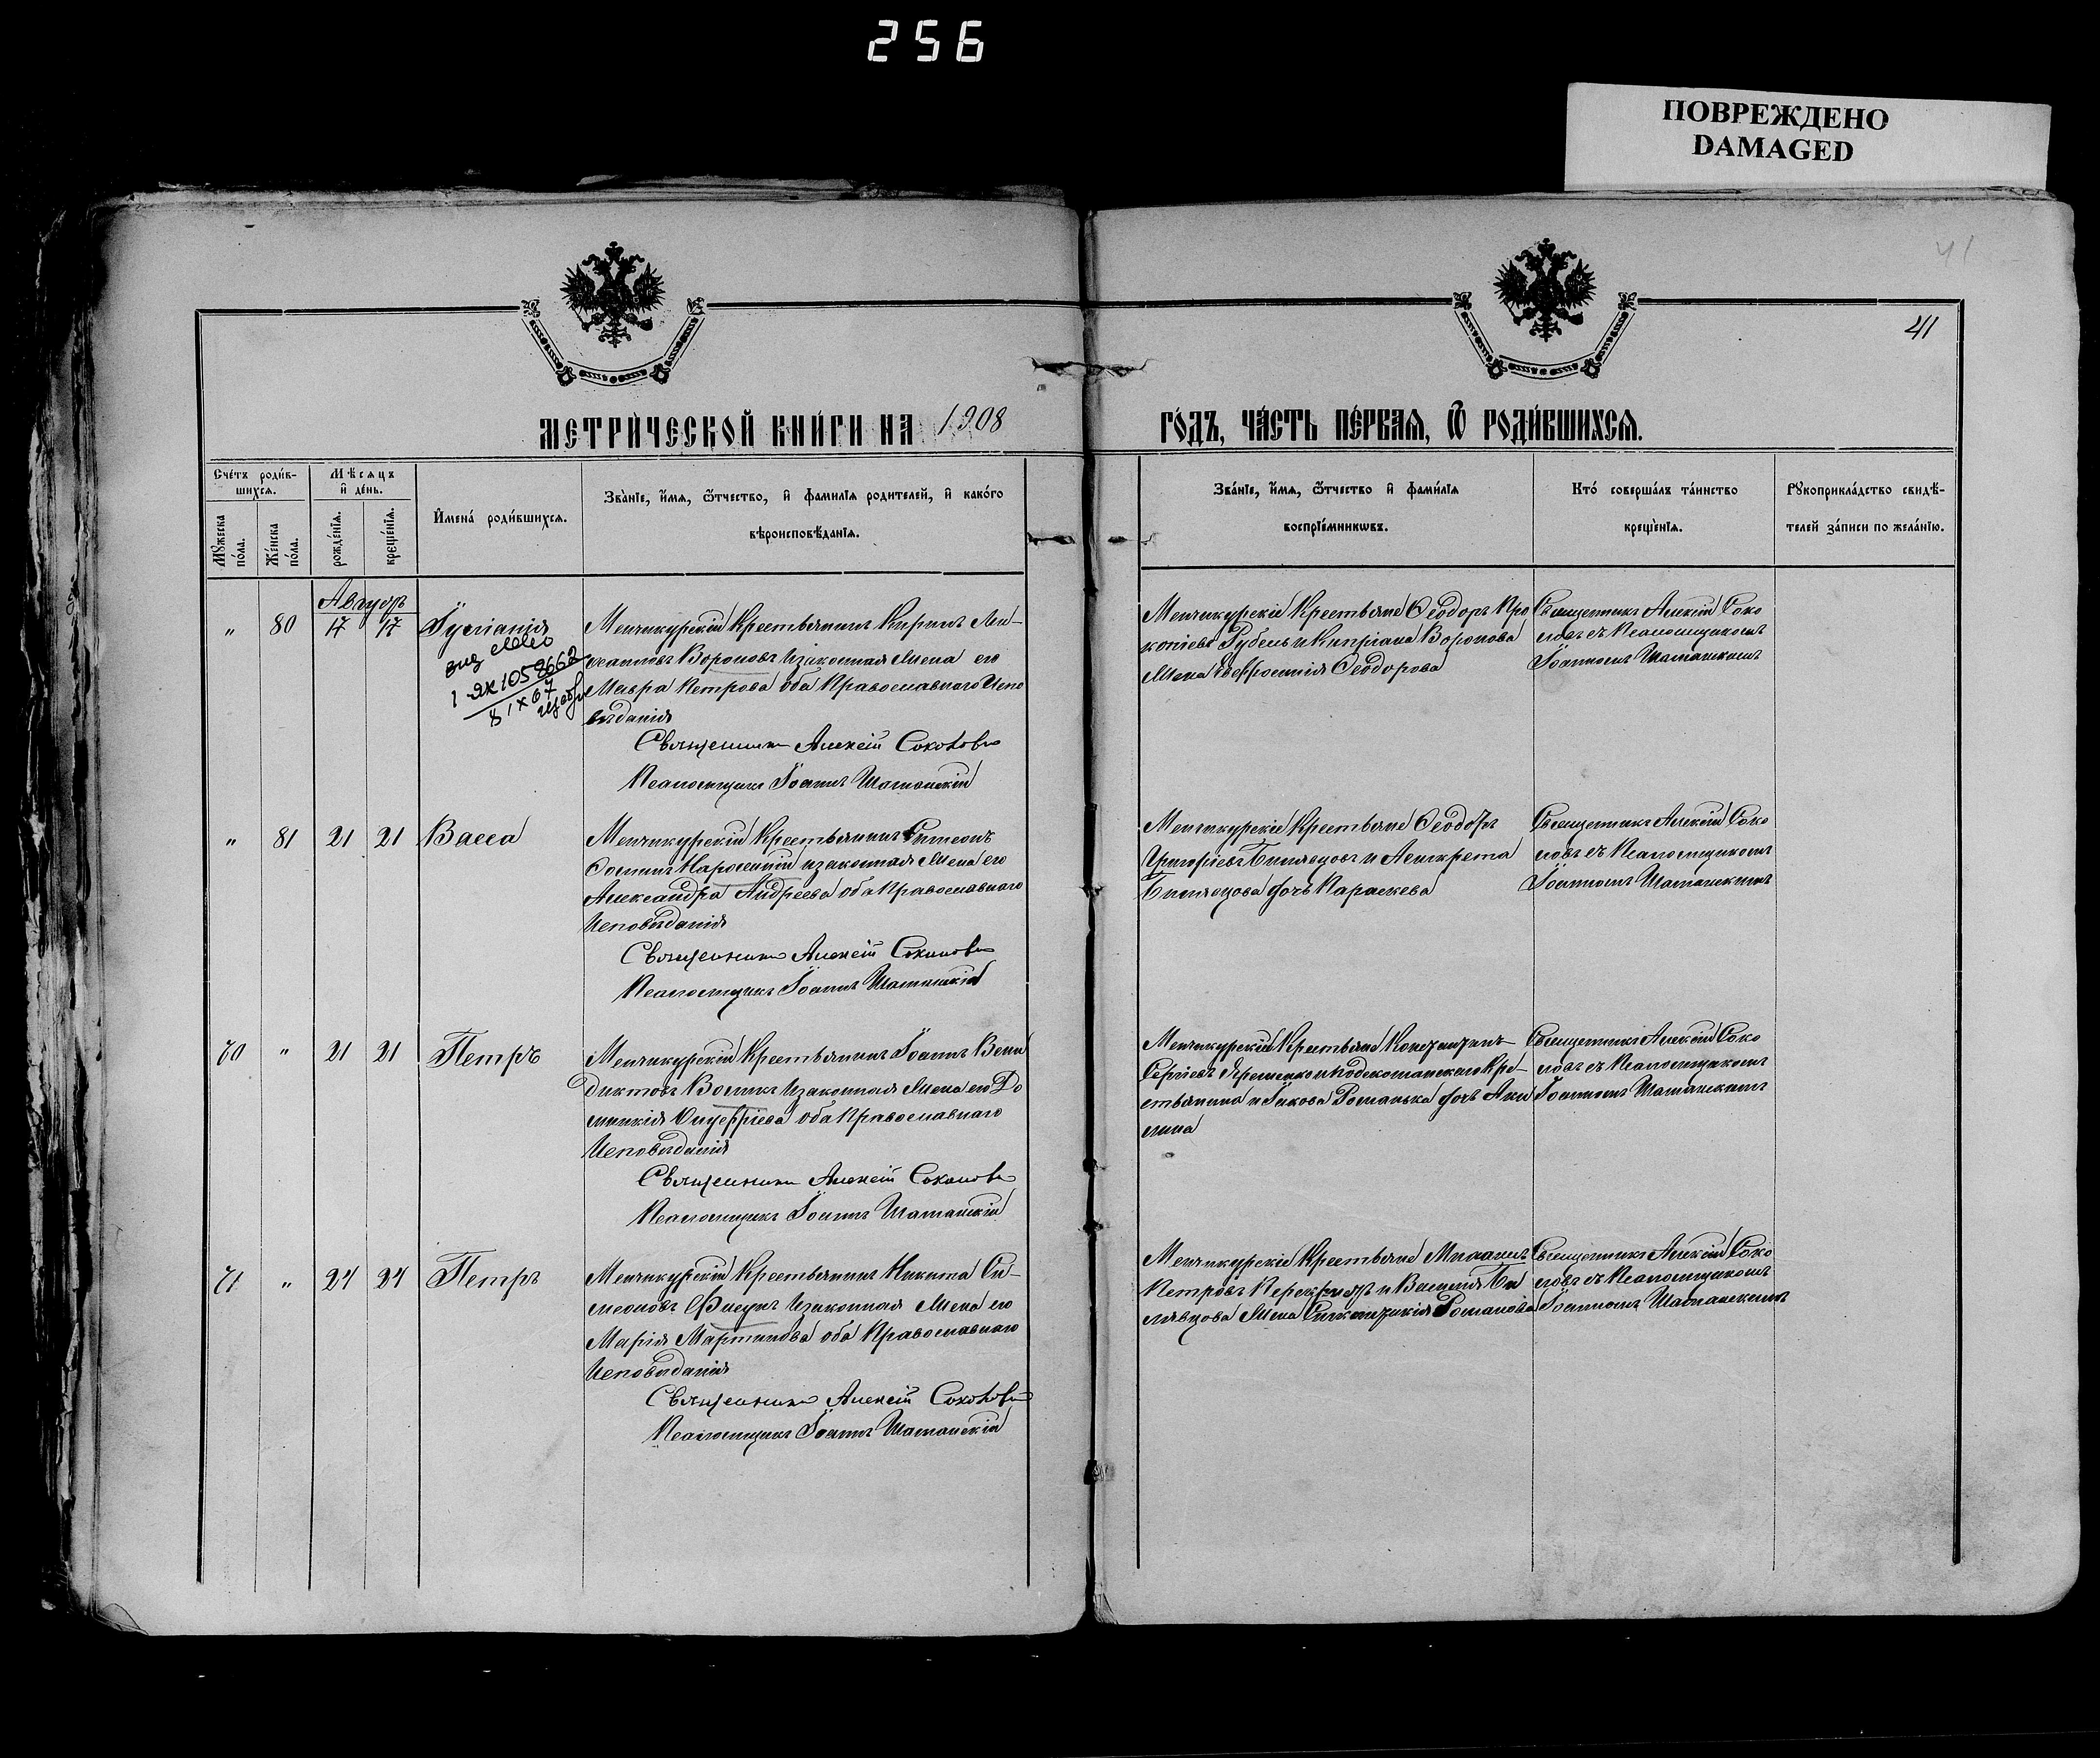 256
ПОВРЕЖДЕНО
DAMAGED
41
41
МЕТРИ́ЧЕСКОЙ КНИ́ГИ НА 1908
ГО́ДЪ, ЧА́СТЬ ПЕ́РВАѦ, Ѿ РОДИ́ВШИХСѦ.
Сче́тъ роди́в-
шихсѧ.
Мѣ́сѧцъ
и҆ де́нь.
Мꙋ́жеска
по́ла.
Же́нска
по́ла.
рожде́нїѧ.
креще́нїѧ.
И҆мена̀ роди́вшихсѧ.
Зва́нїе, и҆́мѧ, ѻ҆́тчество, и҆ фами́лїѧ роди́телей, и҆ како́гѡ
вѣроисповѣ́данїѧ.
Зва́нїе, и҆́мѧ, ѻ҆́тчество и҆ фами́лїѧ
воспрїе́мникѡвъ.
Кто̀ соверша́лъ та́инство
креще́нїѧ.
Рꙋкоприкла́дство свидѣ́-
телей за́писи по жела́нїю.
Августъ
" 80 17 17 Іуліанія
1-ЯК 1058662
8 IX 67
Менчикурскій Крестьянинъ Кирилъ
Вороновъ изаконная жена его
Мавра Петрова оба Православнаго Испо
вѣданія
Священникъ Алексій Соколовъ
Псаломщикъ Іоаннъ Шатанскій
Менчикурскіе Крестьяне Ѳеодоръ Про
копіевъ Рубель и Кипріана Воронова
жена Евфросинія Ѳеодорова
Священникъ Алексій Соко
ловъ съ Псаломщикомъ
Іоанномъ Шатанскимъ
" 81 21 21 Васса
Менчикурскій Крестьянинъ Симеонъ
изаконная жена его
Александра Андреева оба Православнаго
Исповѣданія
Священникъ Алексій Соколовъ
Псаломщикъ Іоаннъ Шатанскій
Менчикурскіе Крестьяне Ѳеодоръ
Григоріевъ и
дочь Параскева
Священникъ Алексій Соко
ловъ съ Псаломщикомъ
Іоанномъ Шатанскимъ
70 " 21 21 Петръ
Менчикурскій Крестьянинъ Іоаннъ Вени
диктовъ Воликъ изаконная жена его До
мникія Онуфріева оба Православнаго
Исповѣданія
Священникъ Алексій Соколовъ
Псаломщикъ Іоаннъ Шатанскій
Менчикурскій Крестьяне Константинъ
Сергіевъ Яременко и Кре-
стьянина Іакова Романька дочь Аки
лина
Священникъ Алексій Соко
ловъ съ Псаломщикомъ
Іоанномъ Шатанскимъ
71 " 24 24 Петръ
Менчикурскій Крестьянинъ Никита Си-
меоновъ Фисунъ изаконная жена его
Марія Мартинова оба Православнаго
Исповѣданія
Священникъ Алексій Соколовъ
Псаломщикъ Іоаннъ Шатанскій
Менчикурскіе Крестьяне Михаилъ
Петровъ и Василія Би
лявцова жена Романова
Священникъ Алексій Соко
ловъ съ Псаломщикомъ
Іоанномъ Шатанскимъ